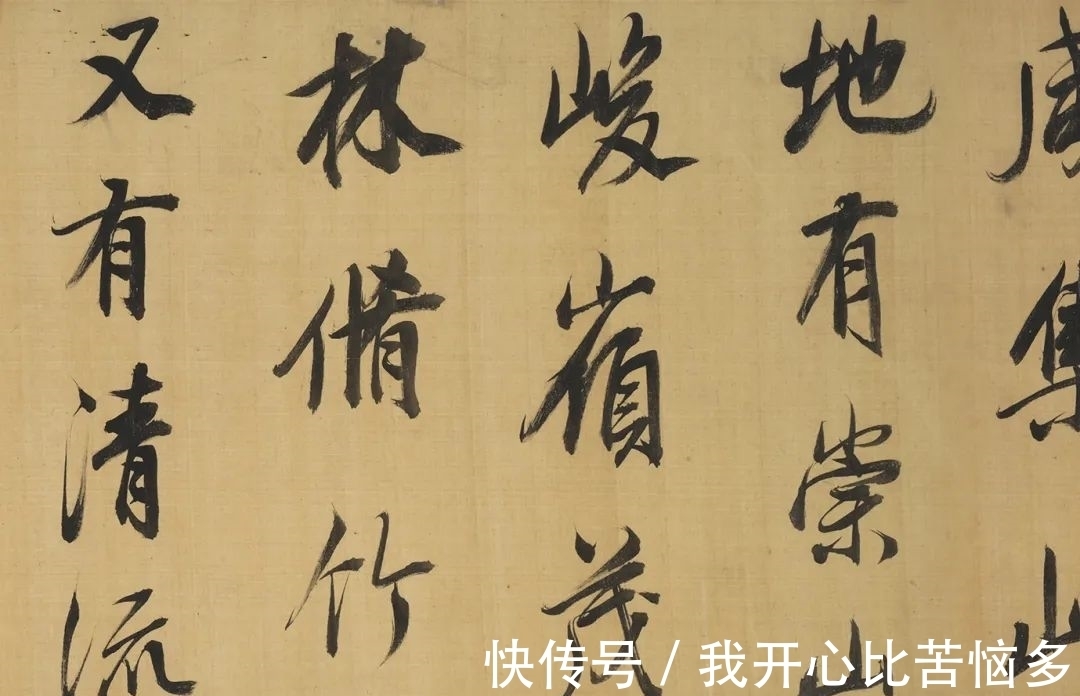 咸集此
地有崇山
峻嶺茂
林脩竹
又有清流
快传号 / 我开心比苦恼多